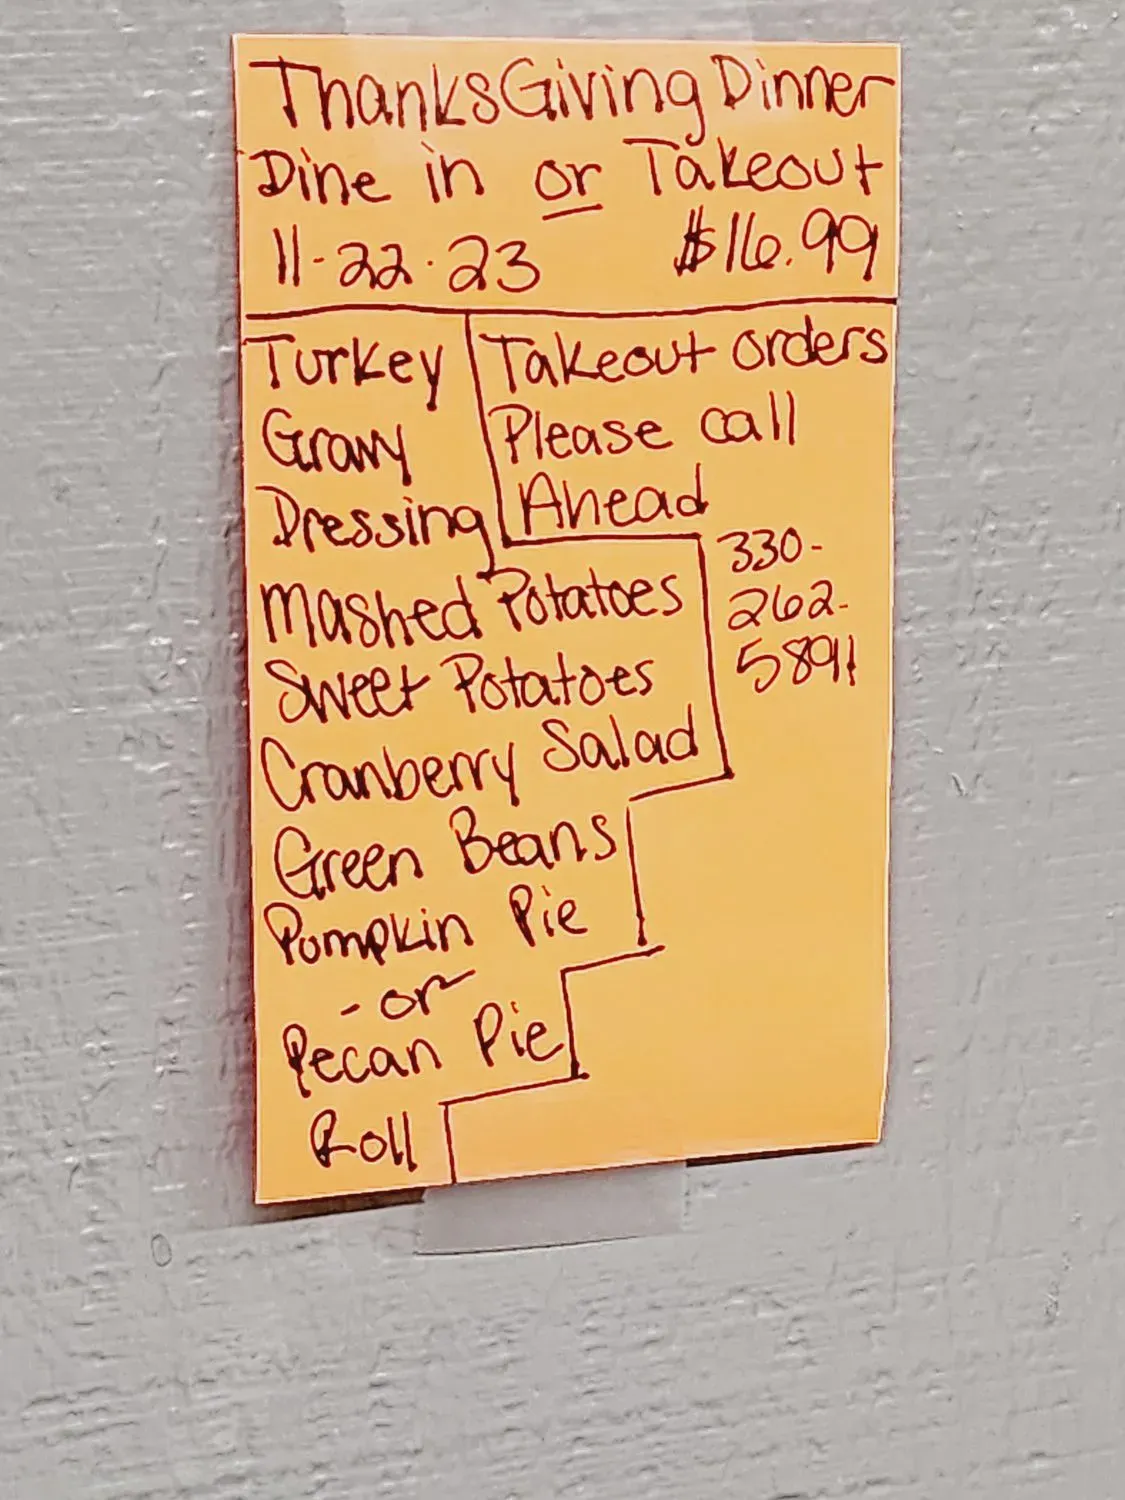 ThanksGiving Dinner
Dine in or Takeout
11-22-23 $16.99
Turkey
Gravy
Dressing
Mashed Potatoes
Sweet Potatoes
Cranberry Salad
Green Beans
Pumpkin Pie
-or
Pecan Pie
Roll
Takeout orders
Please call
Ahead
330-
262-
5891